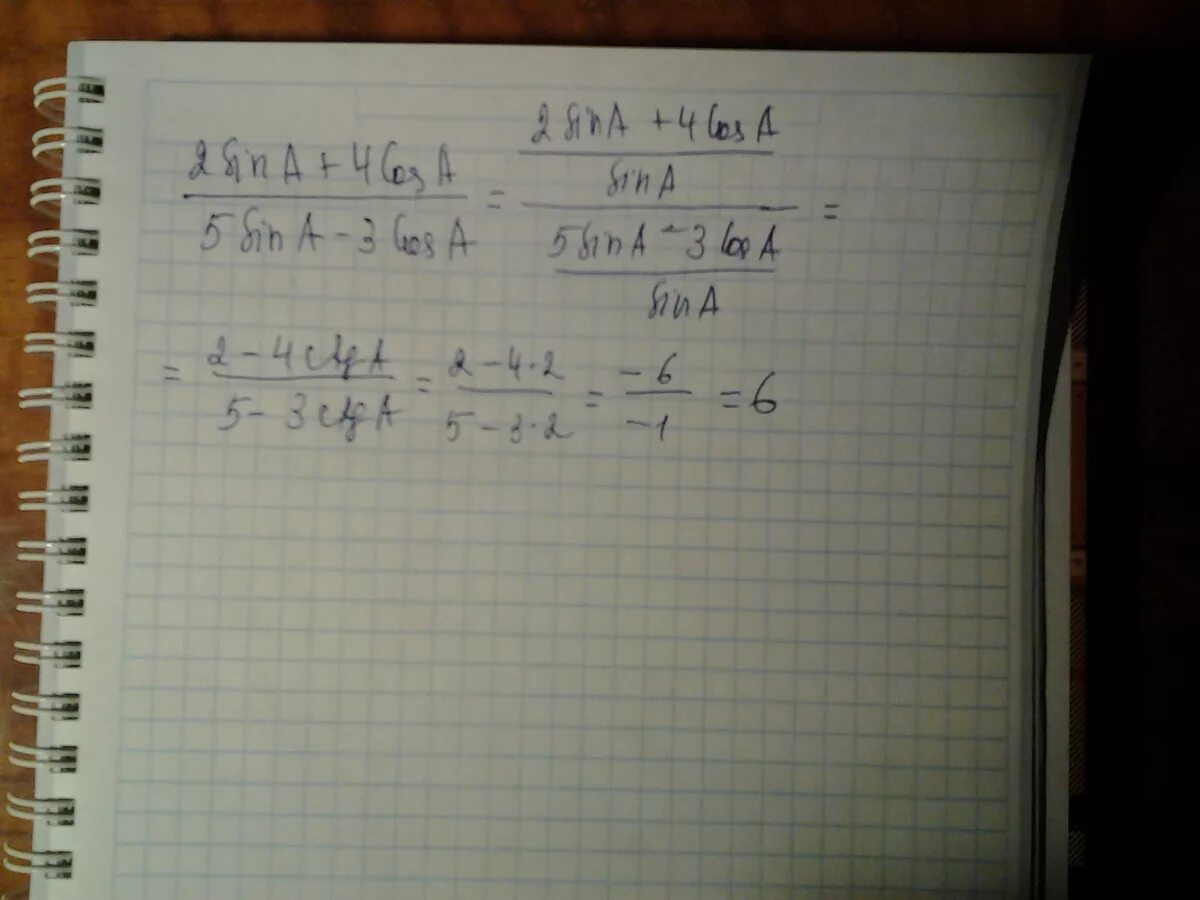 (2 sin A + 4 cos A)/(5 sin A - 3 cos A) = ((2 sin A + 4 cos A)/(sin A))/((5 sin A - 3 cos A)/(sin A)) =
= (2 - 4 ctg A)/(5 - 3 ctg A) = (2 - 4 · 2)/(5 - 3 · 2) = (-6)/(-1) = 6